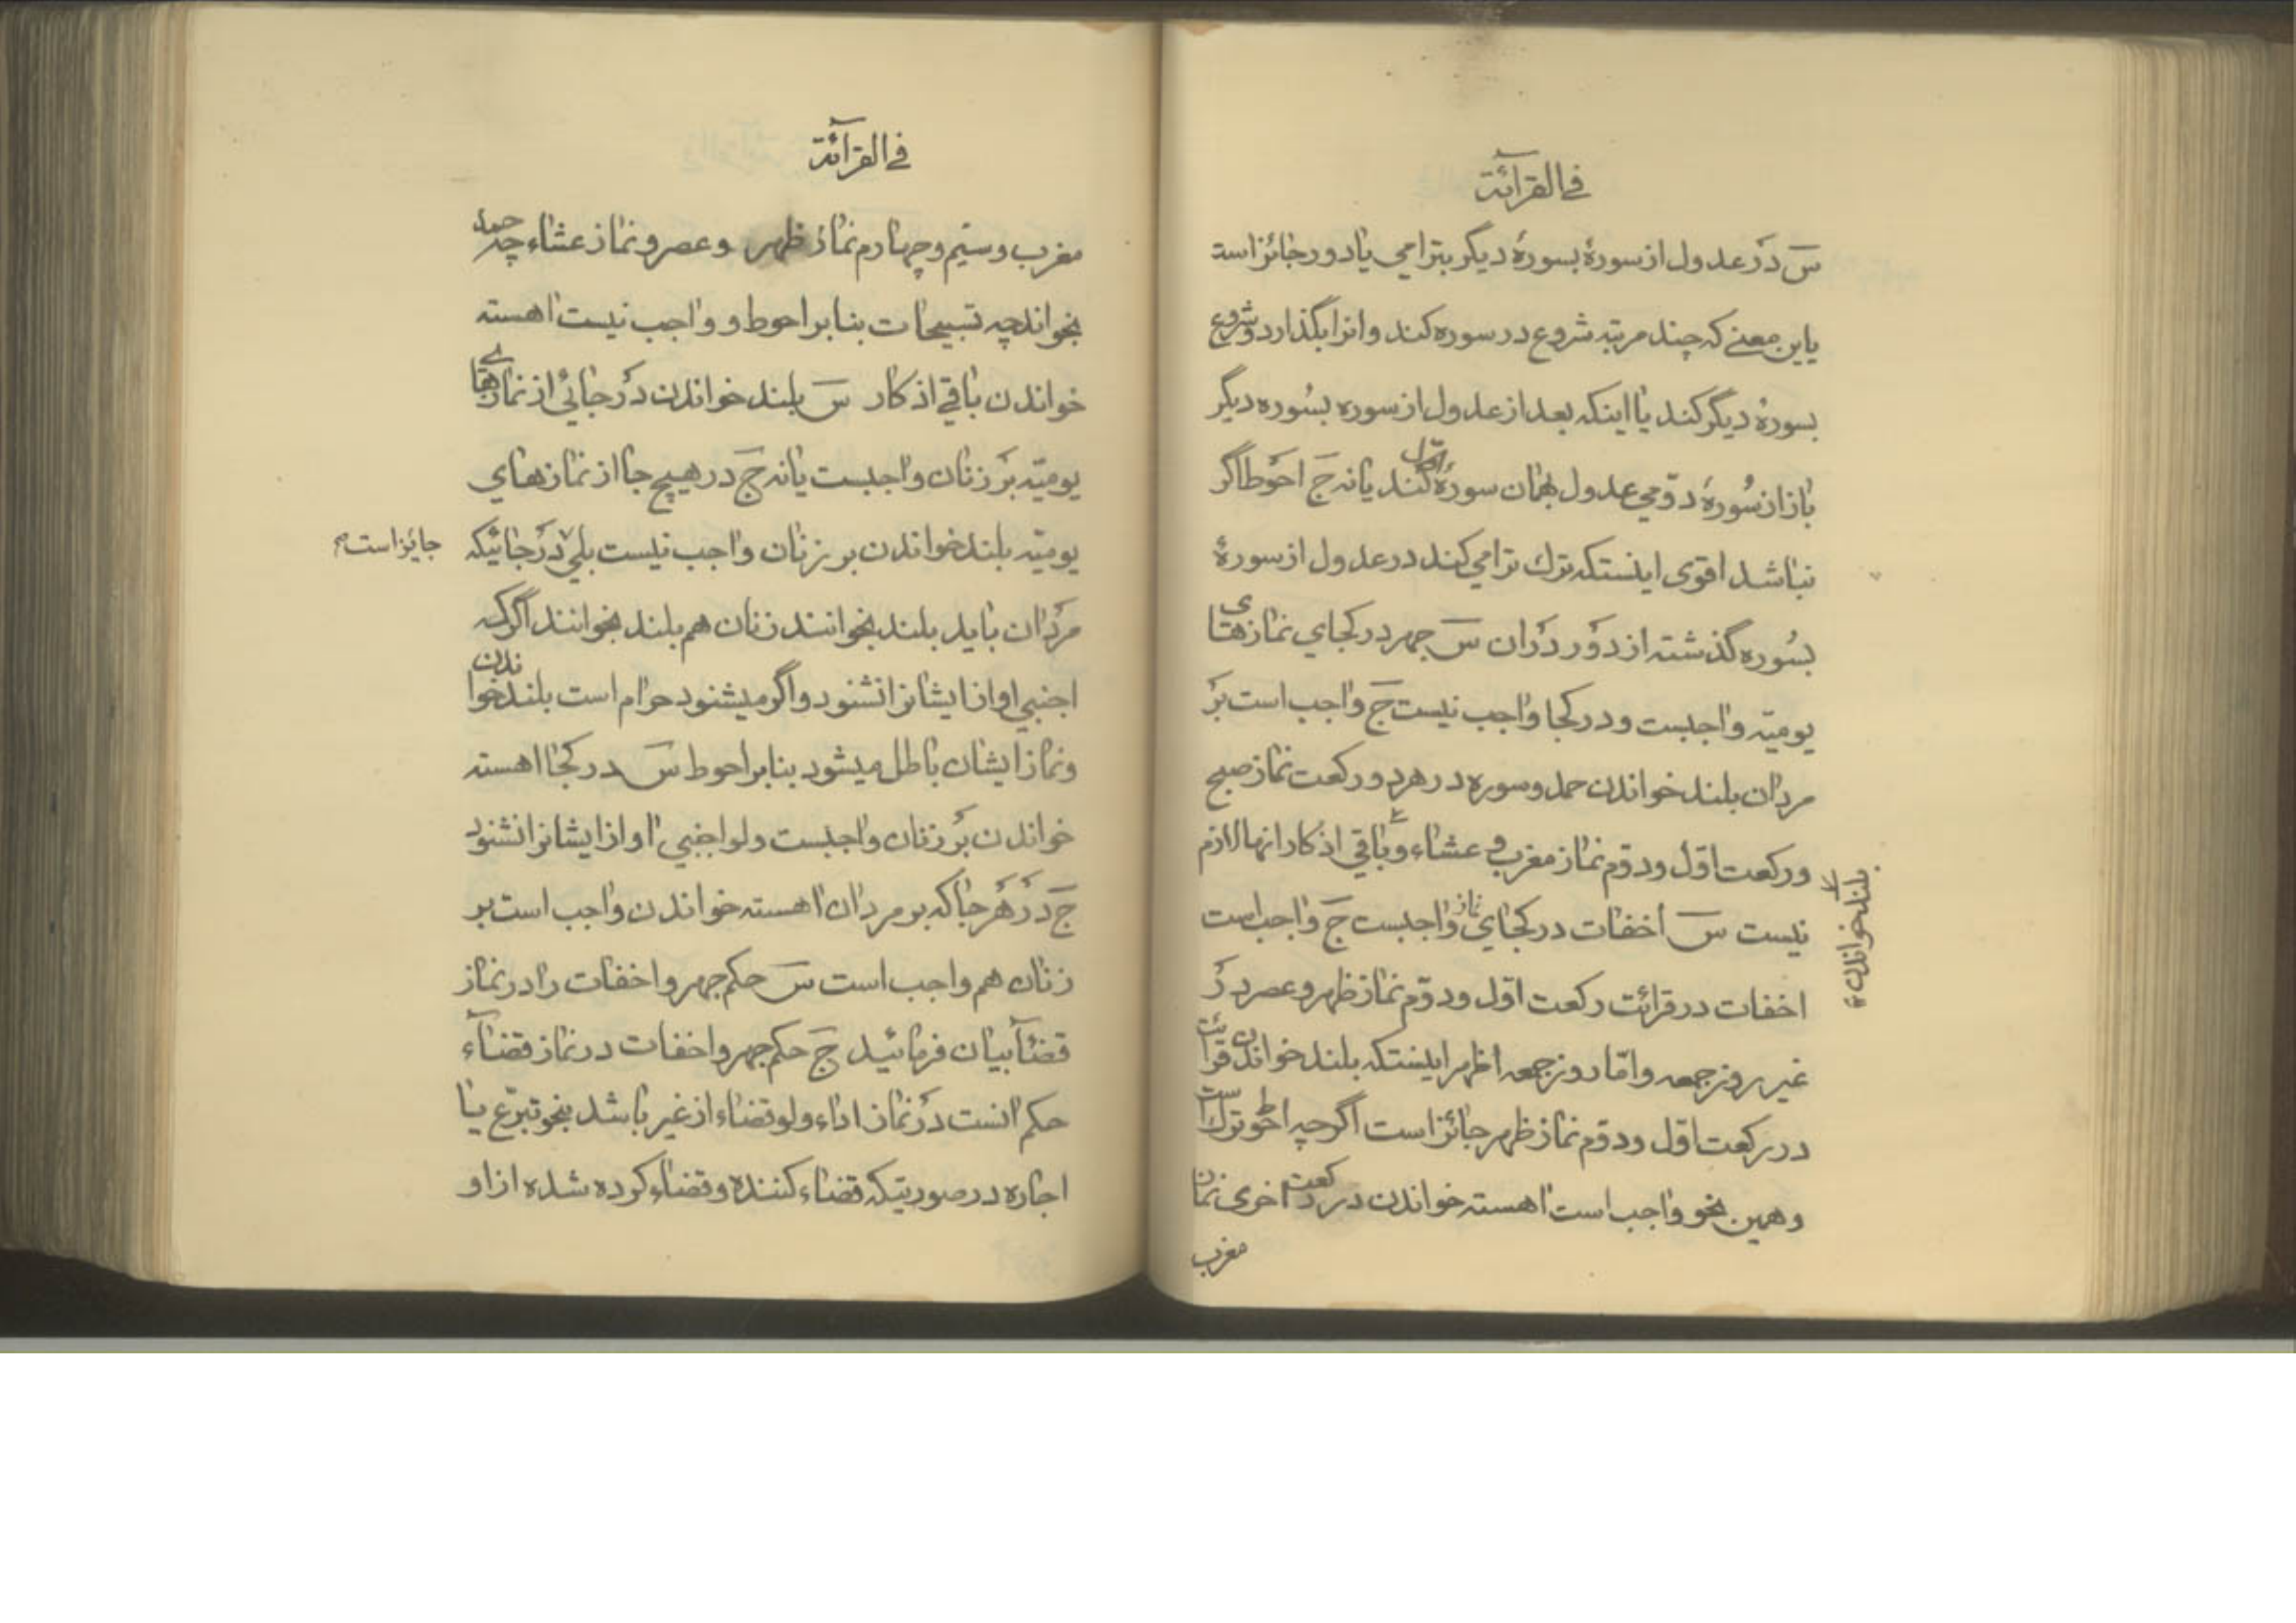 في القرآئة
س در عدول از سورهٔ بسورهٔ دیگر بترامی یا دور جائز است
باین معنے که چند مرتبه شروع در سوره کند و انرا بگذارد و شروع
بسورهٔ دیگر کند یا اینکه بعد از عدول از سوره بسوره دیگر
باز از سُورهٔ دوّمی عدول بهمان سورهٔ اوّل کند یا نه ج احوط اگر
نباشد اقوی اینستکه ترك ترامی کند در عدول از سورهٔ
بسُوره گذشته از دور دران س جهر در کجای نمازهای
یومیّه واجبست و در کجا واجب نیست ج واجب است بر
مردان بلند خواندن حمد و سوره در هر دو رکعت نماز صبح
و رکعت اوّل و دوّم نماز مغرب و عشاء و باقی اذکار انها لازم
بلند خواندن
نیست س اخفات در کجای نماز واجبست ج واجب است
اخفات در قرائت رکعت اوّل و دوّم نماز ظهر و عصر در
غیر روز جمعه و امّا روز جمعه اظهر اینستکه بلند خواندن قرائت
در رکعت اوّل و دوّم نماز ظهر جائز است اگر چه احوط ترك است
و همین نحو واجب است اهسته خواندن در رکعت اخری نماز
مغرب
في القرآئة
مغرب و سیّم و چهارم نماز ظهر و عصر و نماز عشاء چه حمد
بخواند چه تسبیحات بنا بر احوط و واجب نیست اهسته
خواندن باقی اذکار س بلند خواندن در جائی از نمازهای
یومیّه بر زنان واجبست یا نه ج در هیچ جا از نمازهای
یومیّه بلند خواندن بر زنان واجب نیست بلی در جائیکه
جایز است
مردان باید بلند بخوانند زنان هم بلند بخوانند اگر که
اجنبی اواز ایشانرا نشنود و اگر میشنود حرام است بلند خواندن
و نماز ایشان باطل میشود بنا بر احوط س در کجا اهسته
خواندن بر زنان واجبست و لو اجنبی اواز ایشانرا نشنود
ج در هر جا که بر مردان اهسته خواندن واجب است بر
زنان هم واجب است س حکم جهر و اخفات را در نماز
قضآء بیان فرمائید ج حکم جهر و اخفات در نماز قضآء
حکم انست در نماز اداء و لو قضاء از غیر باشد بنحو تبرّع یا
اجاره در صورتیکه قضاء کننده و قضاء کرده شده از او